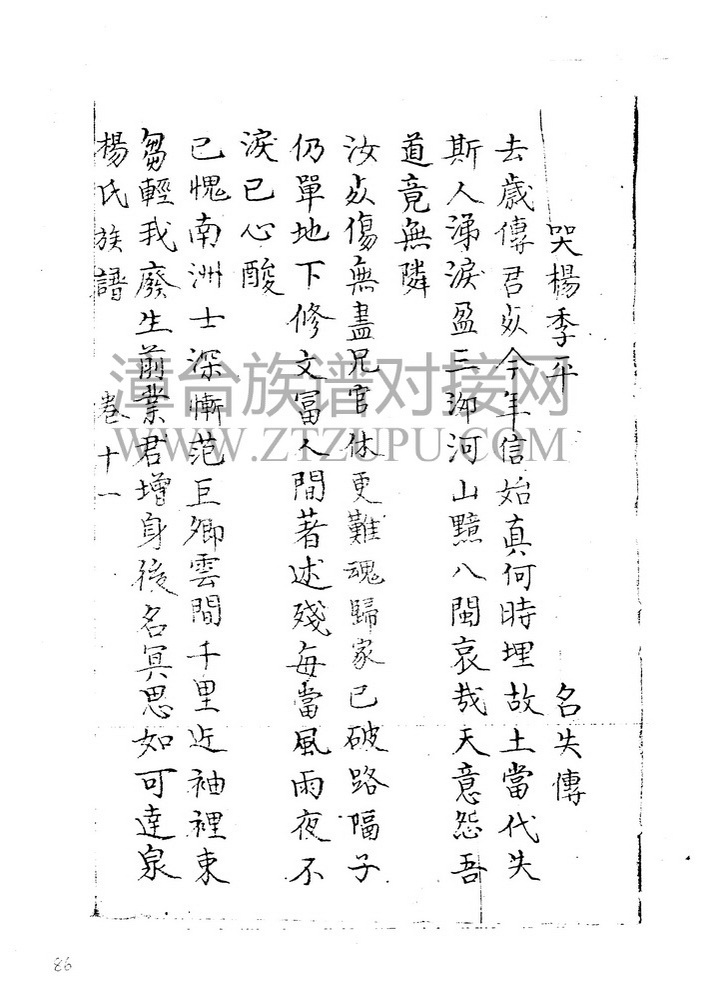 哭楊季平 名失傳
去歲傳君死今年信始真何時埋故土當代失
斯人涕淚盈三泖河山黯八閩哀哉天意怨吾
道竟無隣
汝死傷無盡兄官休更難魂歸家已破路隔子
仍單地下修文冨人間著述殘每當風雨夜不
淚已心酸
已愧南洲士深慚范巨卿雲間千里近袖裡東
芻輕我廢生前業君增身後名冥思如可達泉
楊氏族譜 卷十一
漳台族谱对接网
WWW.ZTZUPU.COM
86